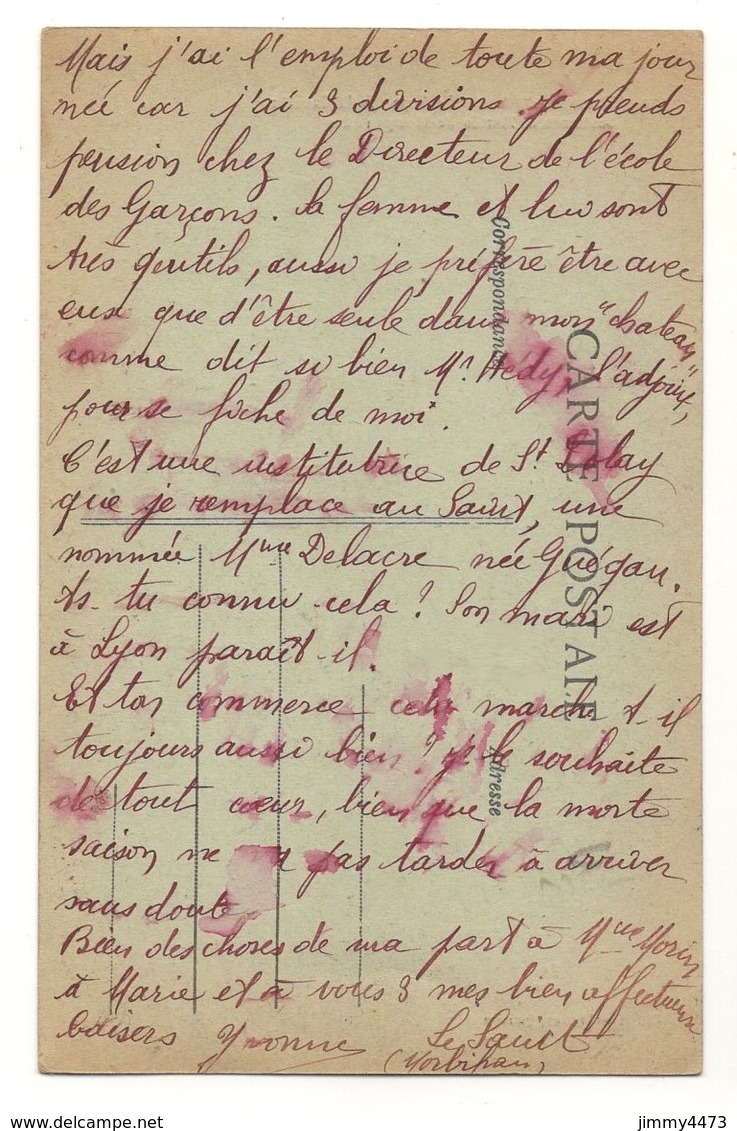 Mais j'ai l'emploi de toute ma jour
née car j'ai 3 divisions. Je prends
pension chez le Directeur de l'école
des Garçons. Sa femme et lui sont
très gentils, aussi je préfère être avec
eux que d'être seule dans mon "chateau"
comme dit si bien Mr. Hédy, l'adjoint,
pour se fiche de moi.
C'est une institutrice de St. Lolay
que je remplace au Saint, une
nommée Mme Delacre née Guégan.
As-tu connu cela? Son mari est
à Lyon paraît-il.
Et ton commerce cela marche-t-il
toujours aussi bien? Je le souhaite
de tout cœur, bien que la morte
saison ne pas tarder à arriver
sans doute
Bien des choses de ma part à Mme Morin
à Marie et à vous 3 mes bien affectueux
baisers Yvonne Le Saint
(Morbihan)
Correspondance
CARTE POSTALE
Adresse
jimmy4473